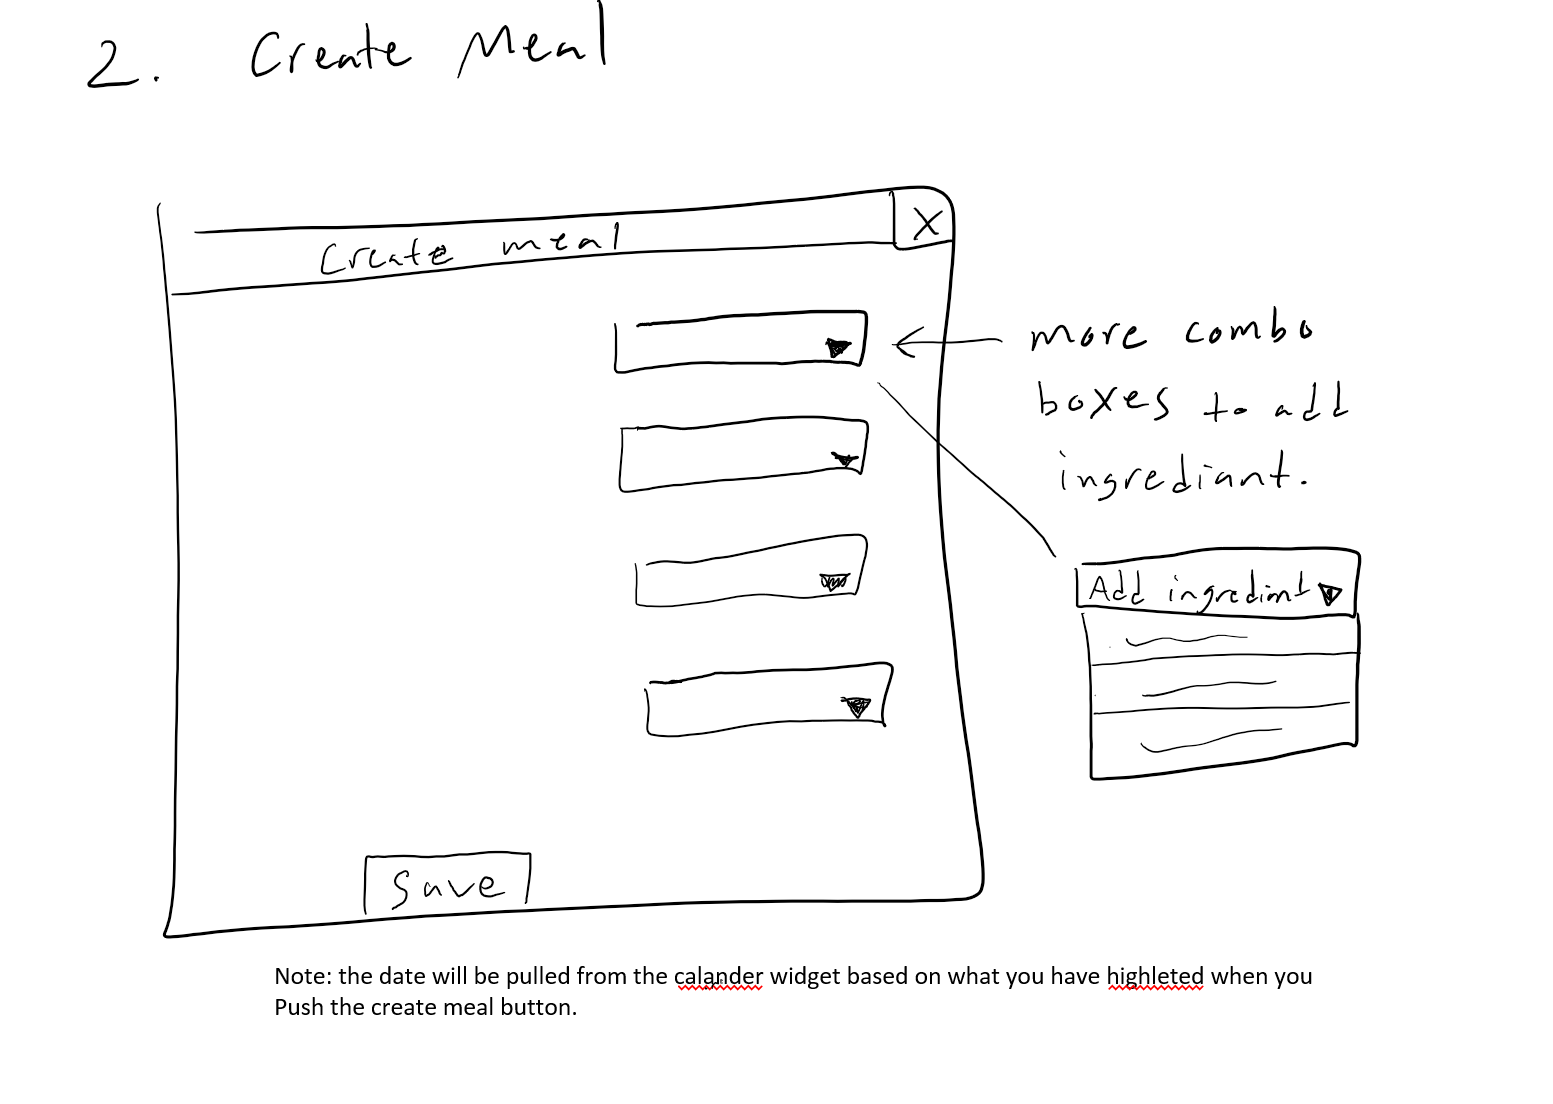 2. Create Meal
Create meal X
more combo
boxes to add
ingrediant.
Add ingrediant
Save
Note: the date will be pulled from the calander widget based on what you have highleted when you
Push the create meal button.